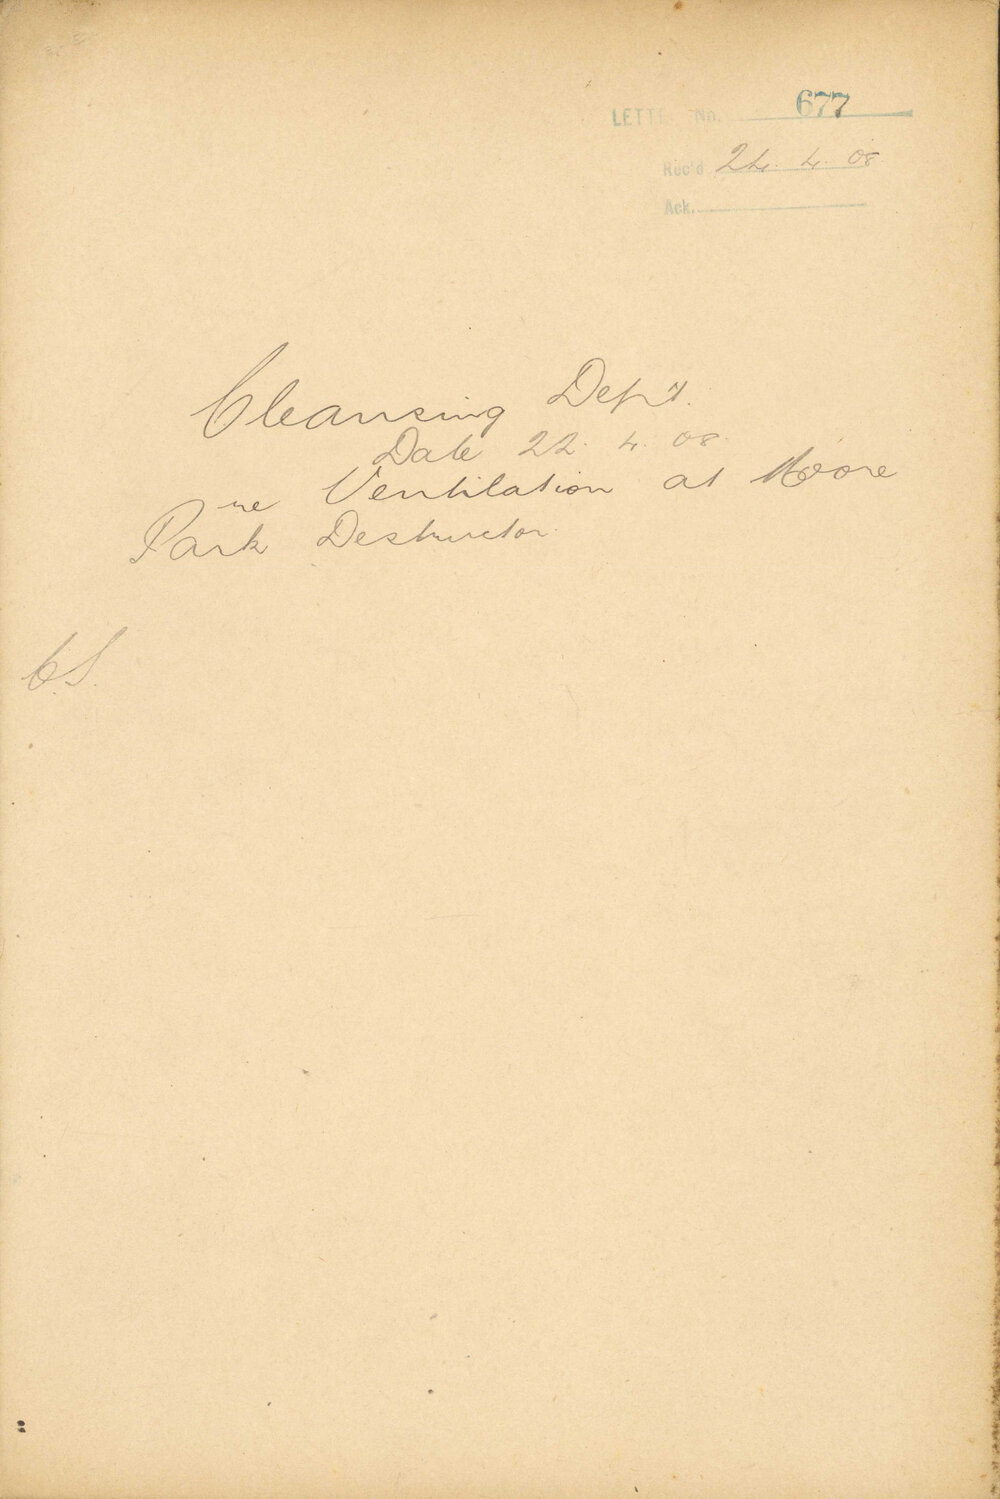 LETTE No. 677
Rec'd 24. 4. 08
Ack.
Cleansing Dep't.
Date 22. 4. 08.
re Ventilation at Moore
Park Destructor.
C.S.